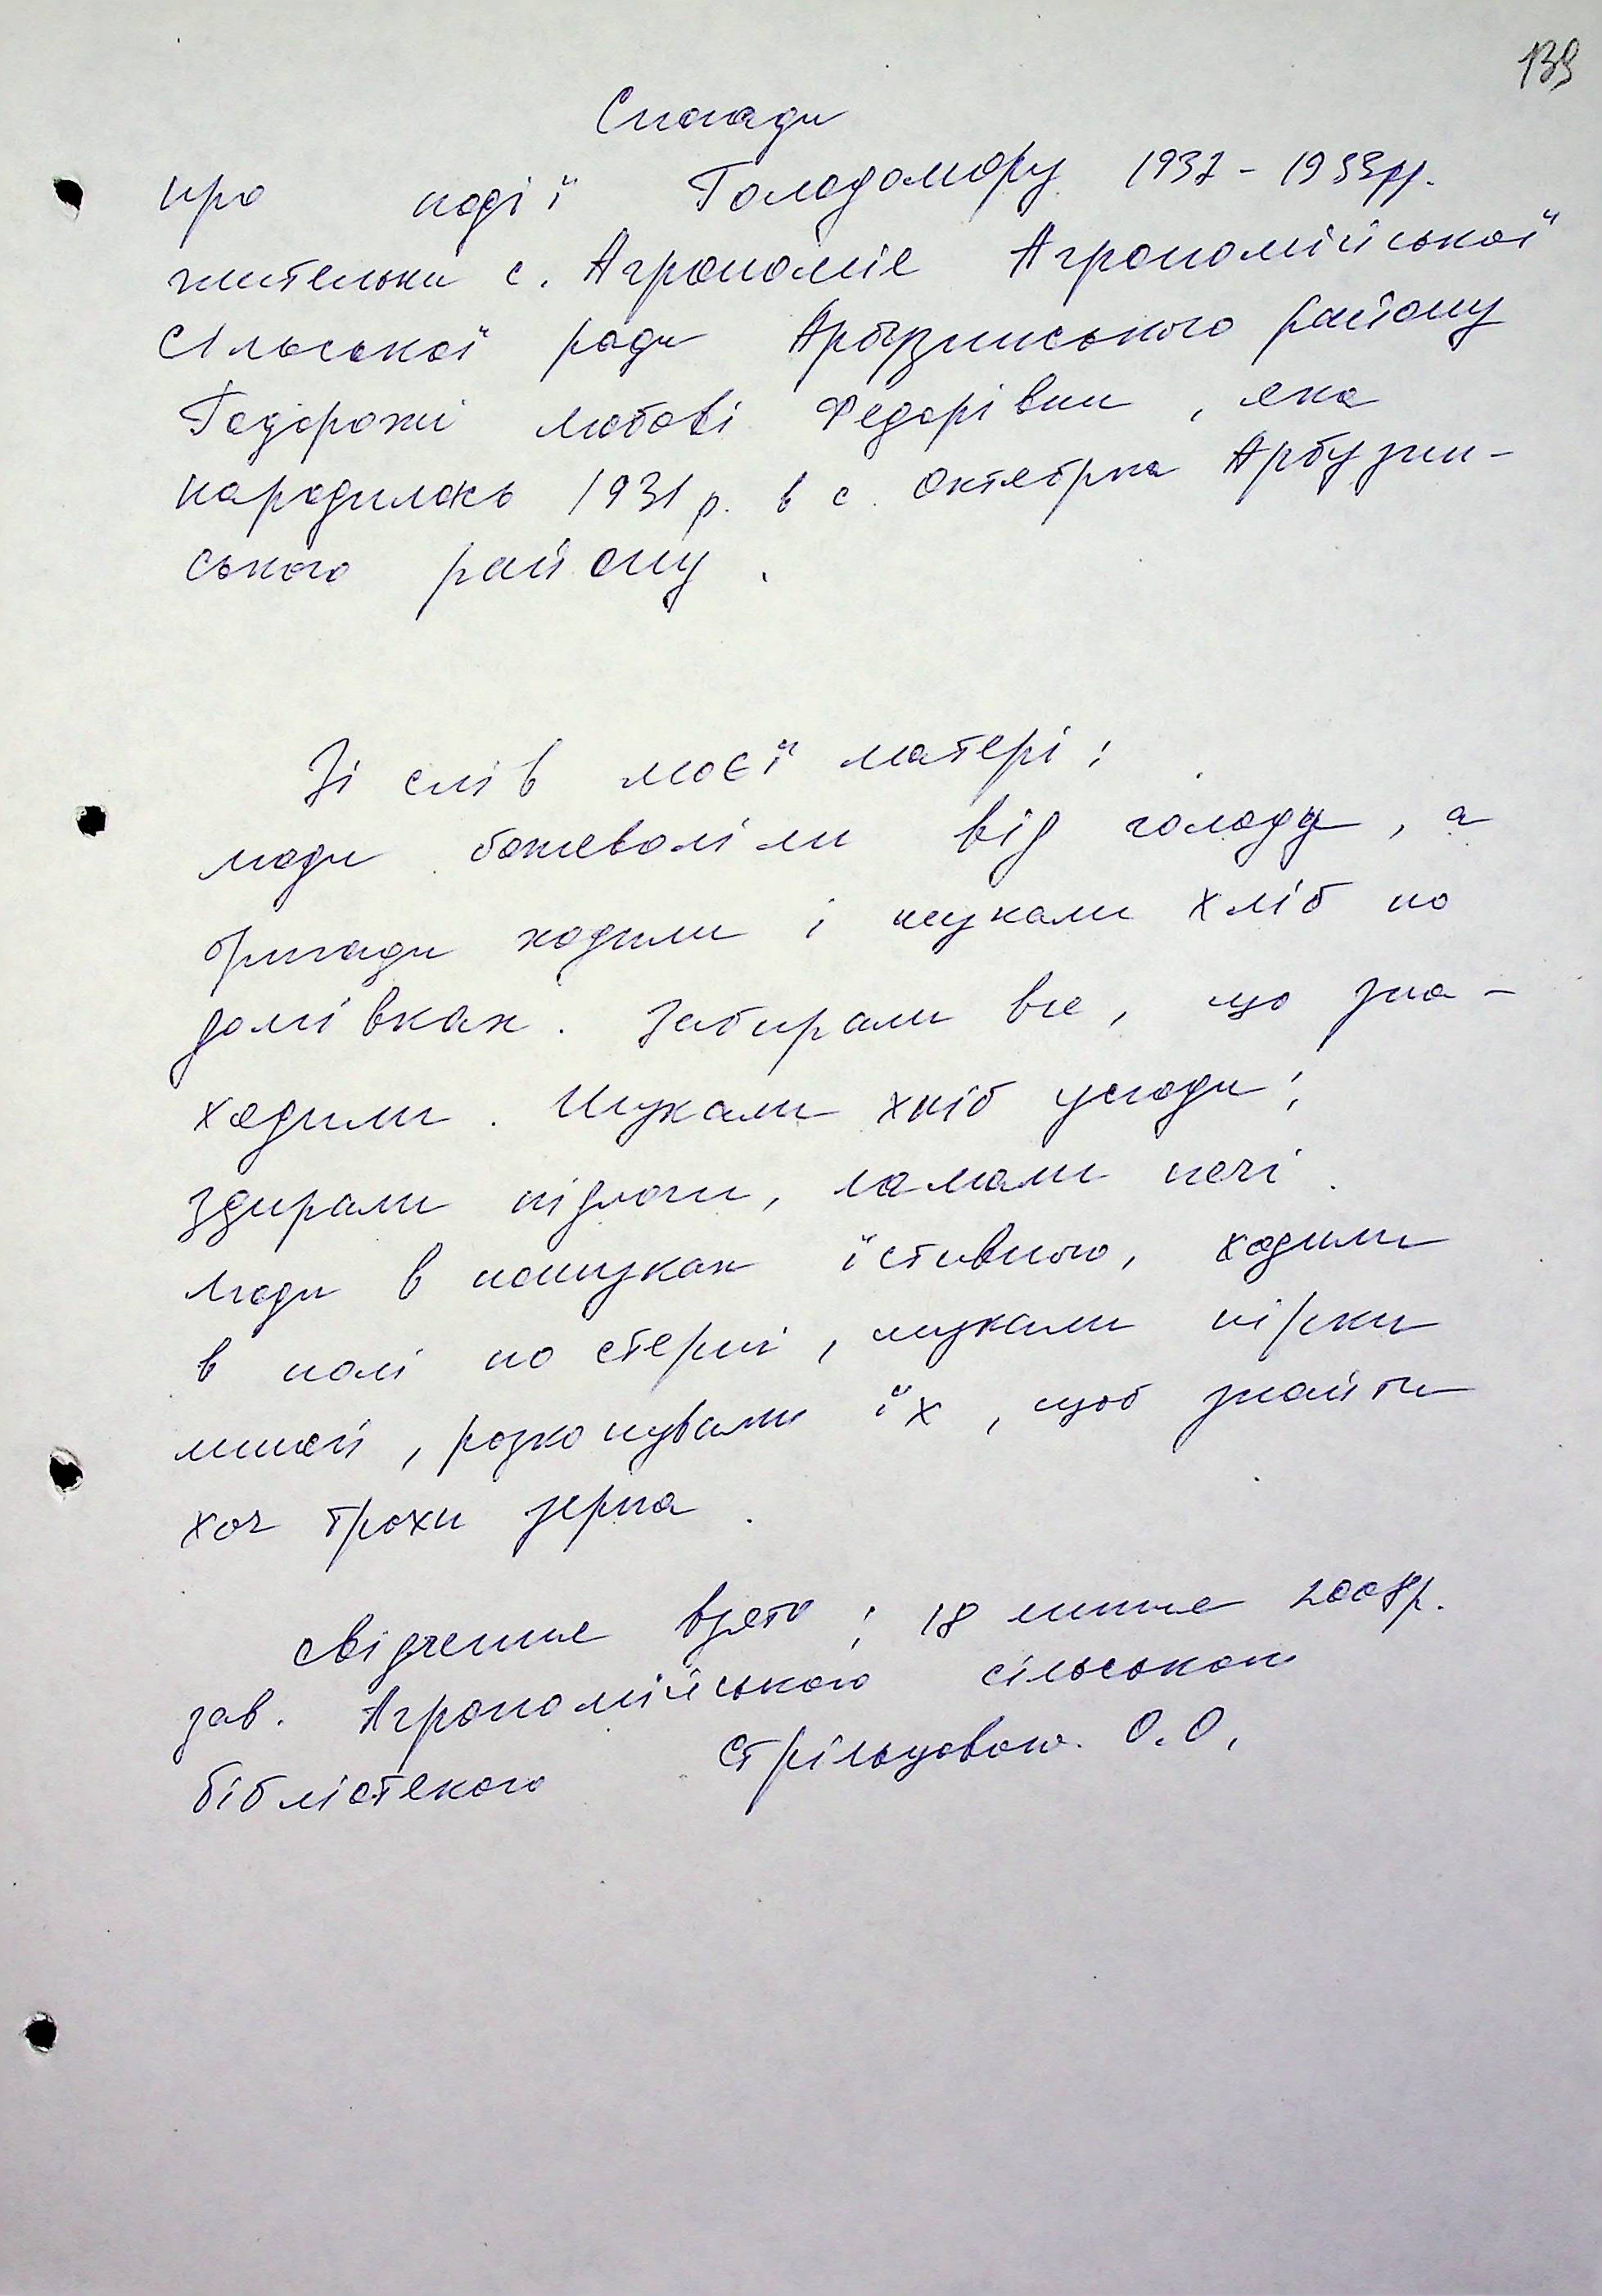 139
Спогади
про події Голодомору 1932 - 1933рр.
жительки с. Агрономія Агрономійської
сільської ради Арбузинського району
Любові Федорівни, яка
народилась 1931 р. в с. Октябрка Арбузин-
ського району.
Зі слів моєї матері:
люди божеволіли від голоду, а
бригади ходили і шукали хліб по
домівках. Забирали все, що зна-
ходили. Шукали хліб усюди:
здирали підлоги, ламали печі.
Люди в пошуках їстивного, ходили
в полі по стерні, шукали нірки
мишей, розкопували їх, щоб знайти
хоч трохи зерна.
Свідчення взято: 18 липня 2008р.
зав. Агрономійською сільською
бібліотекою Стрільцовою О.О.